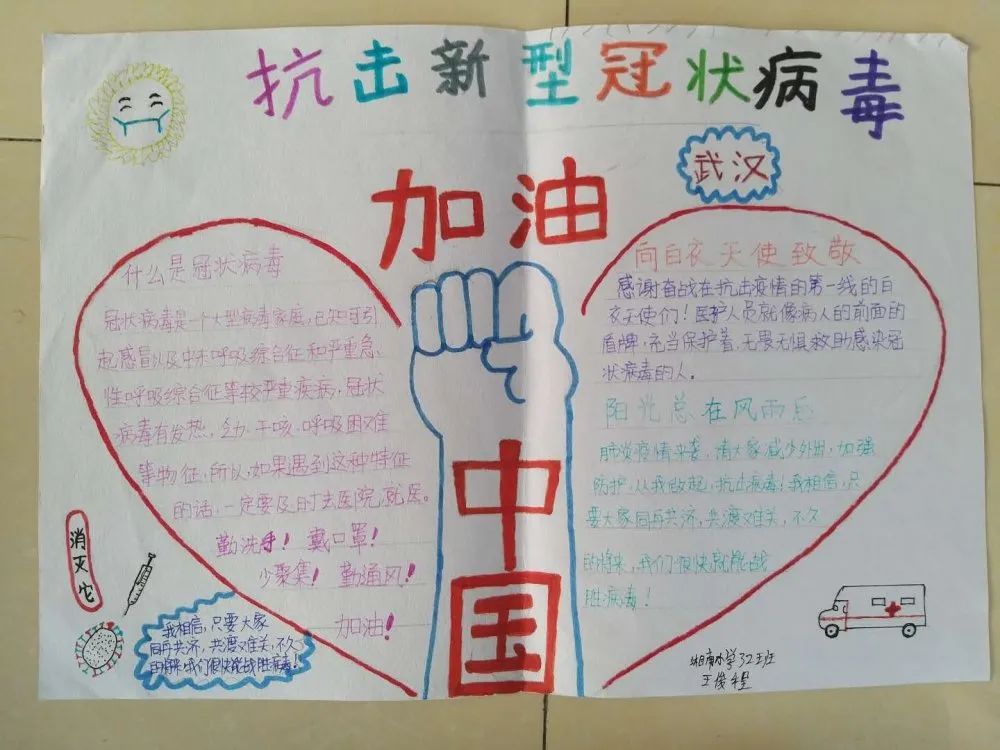 抗击新型冠状病毒
武汉
加油
中国
什么是冠状病毒
冠状病毒是一个大型病毒家庭,已知可引
起感冒以及中东呼吸综合征和严重急
性呼吸综合征等较严重疾病,冠状
病毒有发热,乏力、干咳、呼吸困难
等物征,所以,如果遇到这种特征
的话,一定要及时去医院,就医。
勤洗手!戴口罩!
少聚集!勤通风!
加油!
消灭它
我相信,只要大家
同舟共济,共渡难关,不久
的将来,我们很快能战胜病毒!
向白衣天使致敬
感谢奋战在抗击疫情的第一线的白
衣天使们!医护人员就像病人的前面的
盾牌,充当保护着,无畏无惧救助感染冠
状病毒的人。
阳光总在风雨后
肺炎疫情来袭,请大家减少外出,加强
防护,从我做起,抗击病毒!我相信,只
要大家同舟共济,共渡难关,不久
的将来,我们很快就能战
胜病毒!
小学 班
王俊程